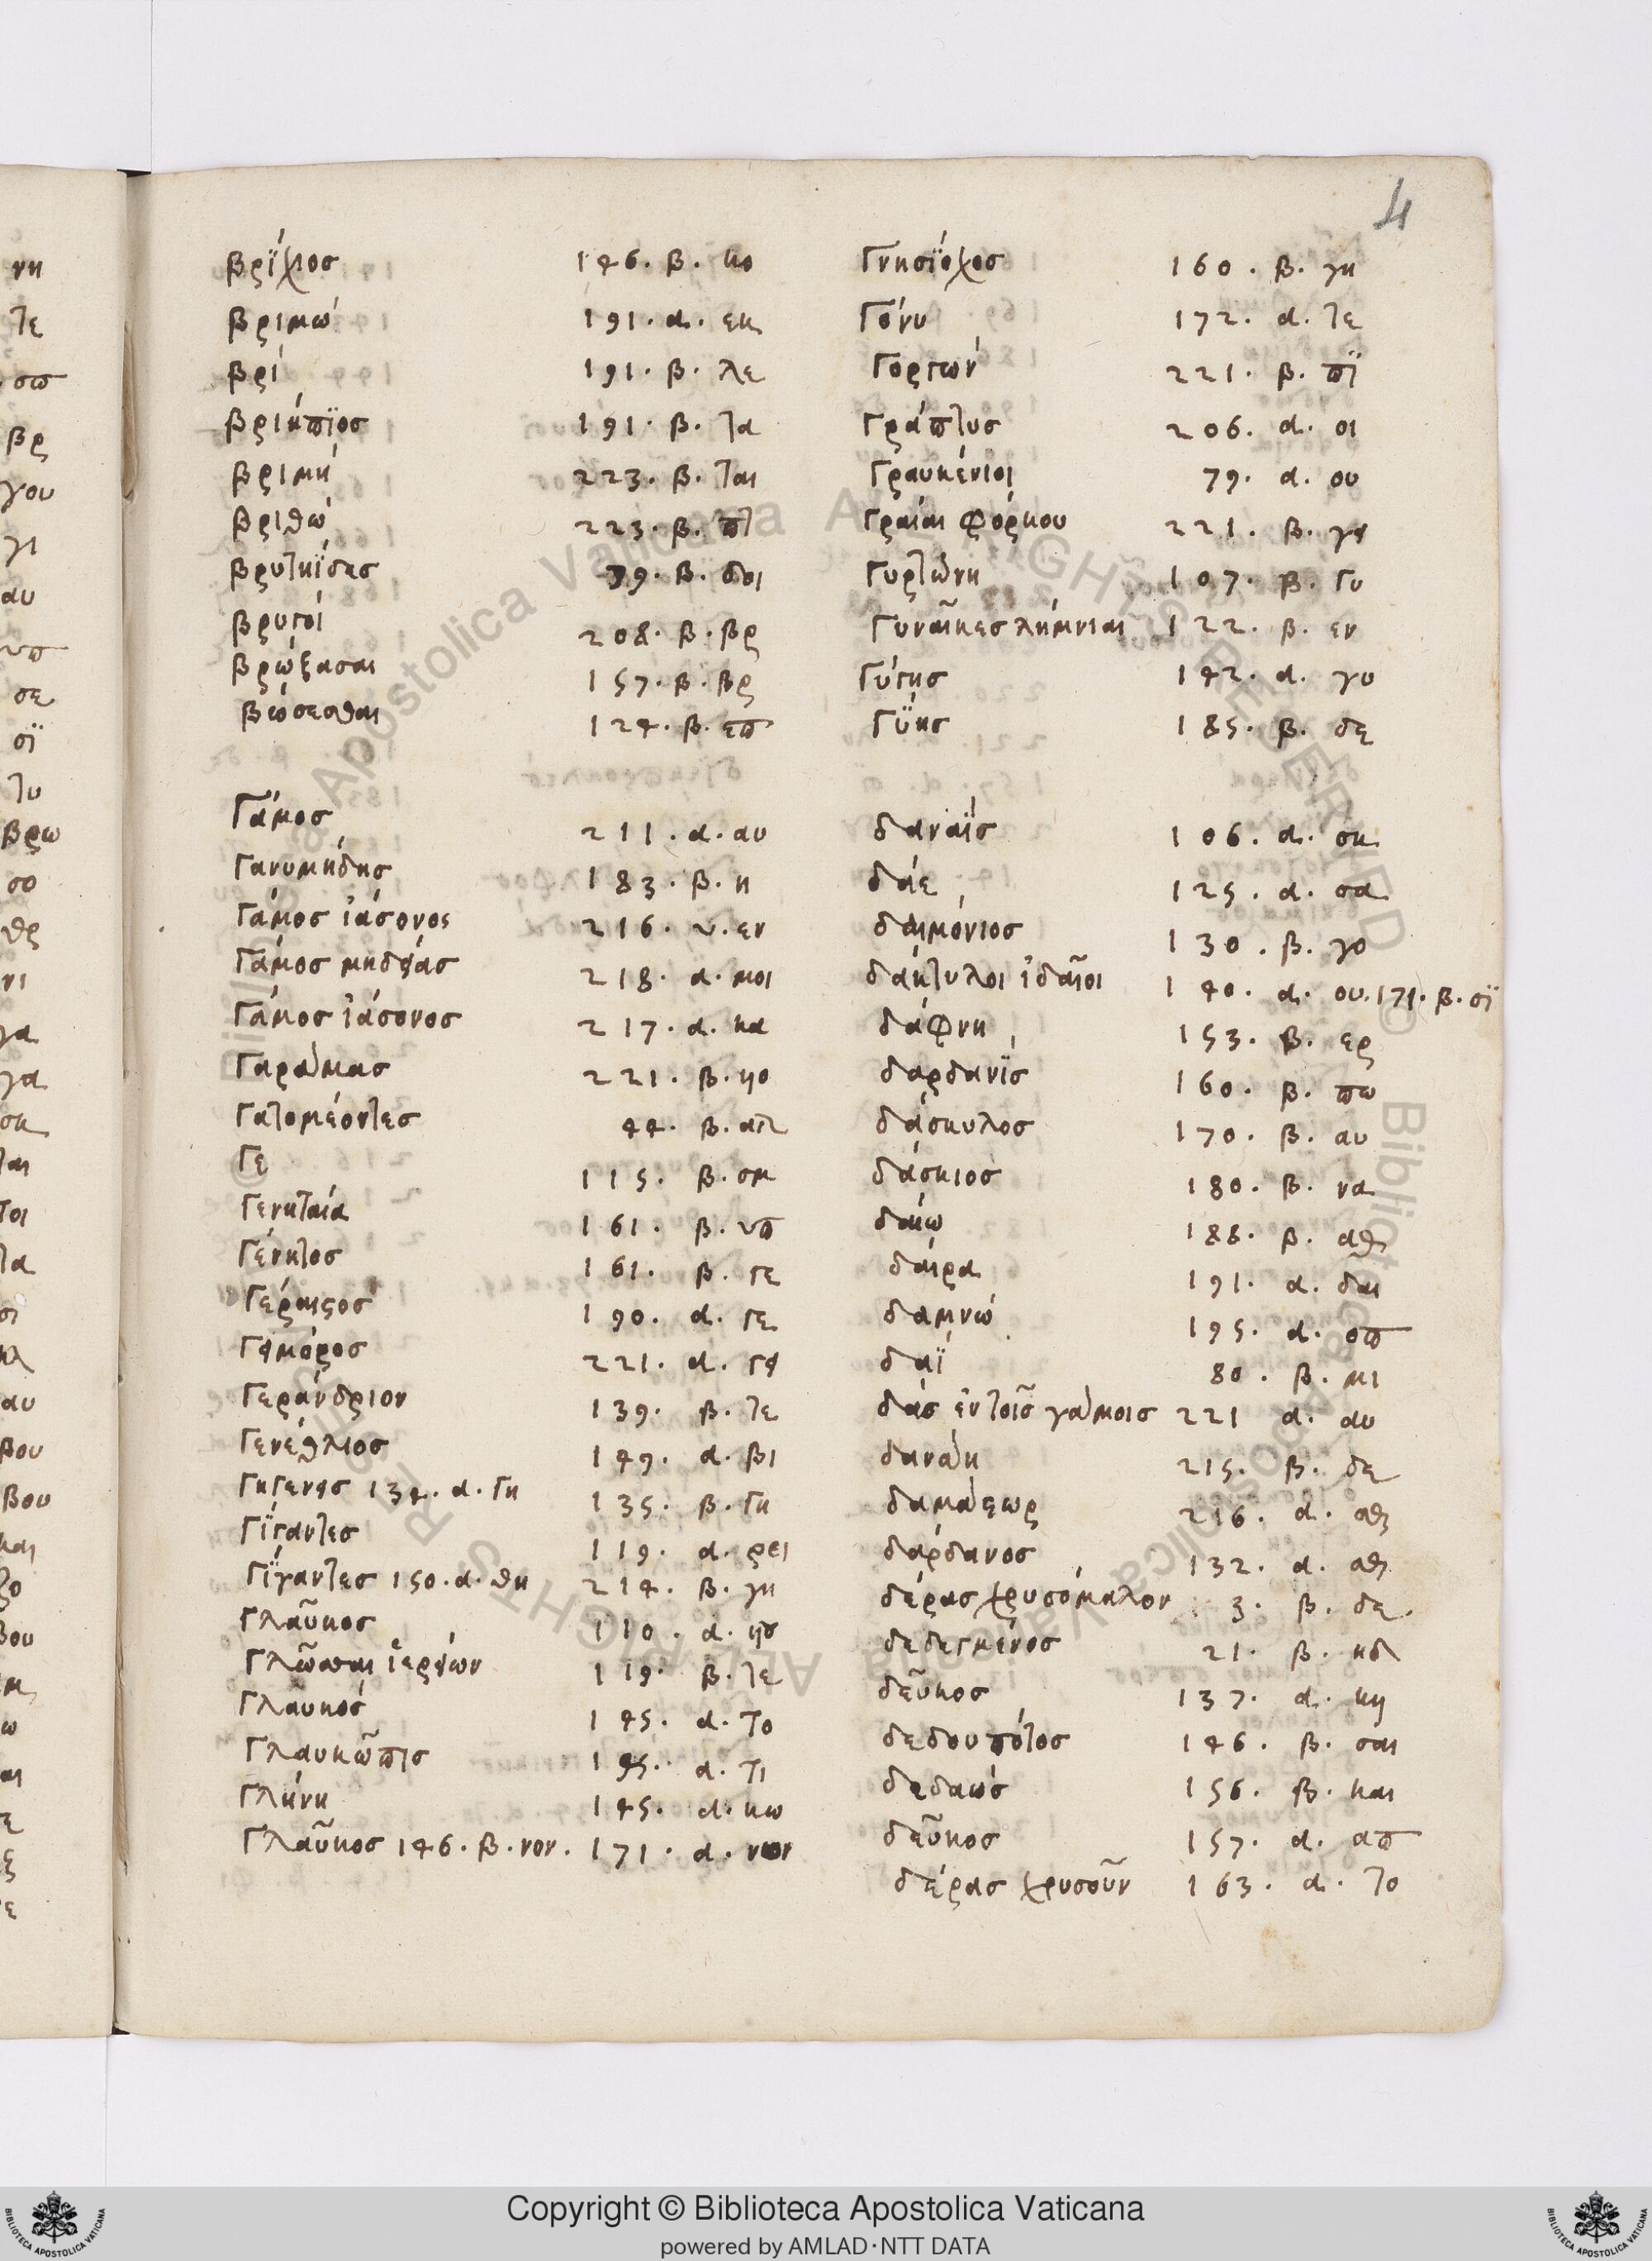 4
βρίχιος 146. β. κο
βριμώ 191. α. εκ
βρί 191. β. λε
βριήπϊος 191. β. τα
βριμή 223. β. ται
βριθώ 223. β. πτ
βρυτηΐδης 79. β. δοι
βρυγοί 208. β. βρ
βρώξασαι 157. β. βρ
βώσεσθαι 124. β. επ
Γάμος 211. α. αυ
Γανυμήδης 183. β. η
Γάμος ἰάσονος 216. εν
Γάμος μηδείας 218. α. μοι
Γάμος ἰάσονος 217. α. κα
Γαράμας 221. β. ησ
Γατομέοντες 44. β.
Γε 115. β. ση
Γενηταία 161. β. υπ
Γένητος 161. β. γε
Γέραιστος 190. α. γε
Γειμόρος 221. α. γει
Γεράνδριον 139. β. τε
Γενέθλιος 149. α. βι
Γηγενεις 134. α. γη 135. β. γη
Γίγαντες 119. α. ρει
Γίγαντες 150. α. θη 214. β. γη
Γλαῦκος 110. α. ησ
Γλῶσσαι ἱερείων 119. β. τε
Γλαυκός 145. α. το
Γλαυκῶπις 145. α. τι
Γλήνη 145. α. κω
Γλαῦκος 146. β. νον. 171. α. νον
Γνησίοχος 160. β. γη
Γόνυ 172. α. τε
Γοργών 221. β. πϊ
Γράπτυς 206. α. οι
Γραυκένιοι 79. α. ου
Γραῖαι Φόρκου 221. β. γει
Γυρτώνη 107. β. γυ
Γυναῖκες λήμνιαι 122. β. εν
Γύγης 142. α. γυ
Γύης 185. β. δε
δαναΐς 106. α. σκ
δάε 125. α. σα
δαιμόνιος 130. β. γο
δάκτυλοι ἰδαῖοι 140. α. ου. 171. β. σϊ
δάφνη 153. β. ερ
δαρδανίς 160. β. πω
δάσκυλος 170. β. αυ
δάσκιος 180. β. να
δαίω 188. β. αθ
δάιρα 191. α. δαι
δαμνώ 195. α. οπ
δαΐ 80. β. μι
δάς ἐν τοῖς γάμοις 221 α. αυ
δανάη 215. β. δε
δαμάστωρ 216. α. αθ
δάρδανος 132. α. αθ
δέρας χρυσόμαλον 3. β. δε.
δεδεγμένος 21. β. κδ
δεῦκος 137. α. κη
δεδουπότος 146. β. σαι
δεδαώς 156. β. και
δεῦκος 157. α. απ
δέρας χρυσοῦν 163. α. το
Copyright © Biblioteca Apostolica Vaticana
powered by AMLAD·NTT DATA